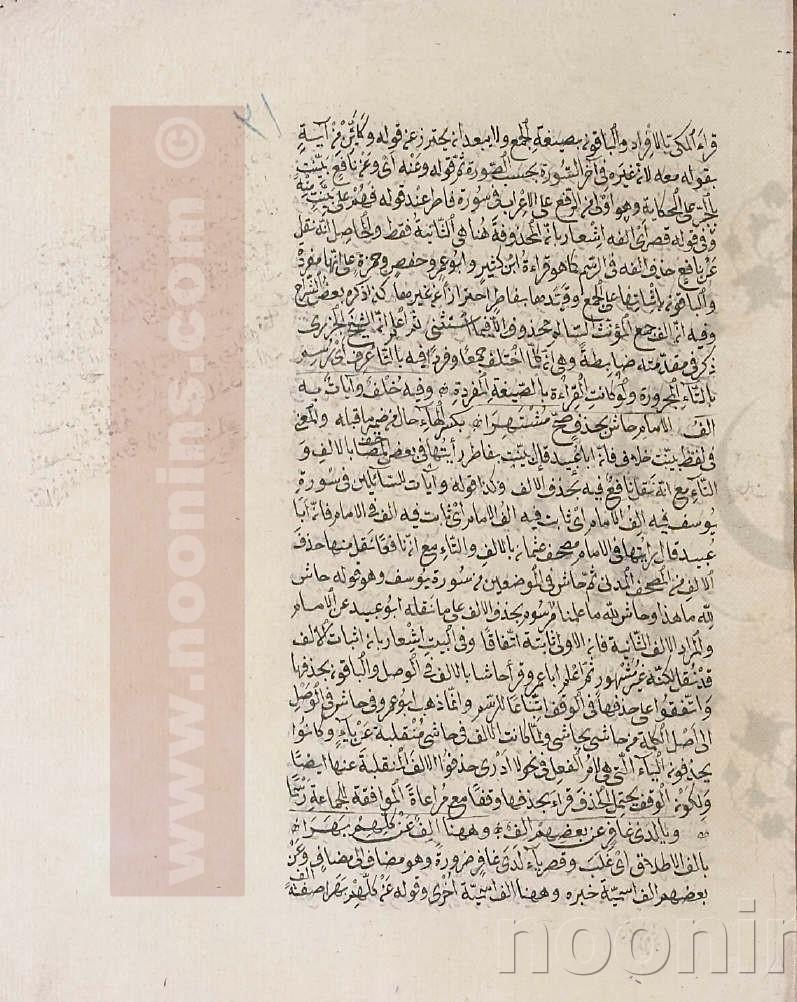 ٣١
قراءة المكي بالافراد والباقون بصيغة الجمع ولا يبعد انه يحترز عن قوله وكأين من آية
بقوله معه لانه غيره في آخر السورة بحسب الصورة ثم قوله وعنه اى وعن نافع بينت
بالجر على الحكاية وهو اولى من الرفع على الاعراب في سورة فاطر عند قوله فهم على بينت منه
وفي قوله قصر اى الفه اشعار بان المحذوفة هنا هي الثانية فقط والحاصل انه نقل
عن نافع حذف الفه في الرسم كما هو قراءة ابن كثير وابو عمرو وحفص وحمزة على انها مفرد
والباقون باثباتها على الجمع وقيدها بفاطر احترازا عن غيرها كذا ذكره بعض الشراح
وفيه ان الف جمع المؤنث السالم محذوف الا فيما استثنى ثم اعلم ان الشيخ الجزري
ذكر في مقدمته ضابطة وهي ان كل ما اختلف جمعا وفردا فيه بالتاء عرف اى رسم
بالتاء المجرورة ولو كانت القراءة بالصيغة المفردة وفيه خلف وآيات به
الف الامام حاش بحذف صح مشتهرا بكسر الهاء حال من ضمير ما قبله والمعنى
في لفظ بينت خلف فان ابا عبيد قال بينت بفاطر رأيتها في بعض المصاحف بالالف و
التاء مع انه نقل نافع فيه بحذف الالف وكذا قوله وآيات للسائلين في سورة
يوسف فيه الف الامام اى ثابت فيه الف الامام اى ثابت فيه الف في الامام فان ابا
عبيد قال رايتها في الامام مصحف عثمان بالالف والتاء مع ان نافعا نقل منها حذف
الالف من المصحف المدنى ثم حاش في الموضعين من سورة يوسف وهو قوله حاش
لله ما هذا وحاش لله ما علمنا مرسوم بحذف الالف على ما نقله ابو عبيد عن الامام
والمراد الالف الثانية فان الاولى ثابتة اتفاقا وفي البيت اشعار بان اثبات الالف
قد نقل لكنه غير مشهور ثم اعلم ان ابا عمرو قرأ حاشا بالالف في الوصل والباقون بحذفها
واتفقوا على حذفها في الوقف اتباعا للرسم وانما ذهب ابو عمرو في حاش في الوصل
الى اصل الكلمة من حاشى يحاشى ولما كانت الالف في حاشى منقلبة عن ياء وكانوا
يحذفون الياء التي هي لام الفعل في نحو لا ادرى حذفوا الالف المنقلبة عنها ايضا
ولكون الوقف يحتمل الحذف قراء بحذفها وقفا مع مراعاة الموافقة للجماعة رسما
ويا لدى غافر عن بعضهم الف وههنا الف عن كلهم بهرا
بالف الاطلاق اى غلب وقصر ياء لدى غافر ضرورة وهو مضاف الى مضاف وعن
بعضهم الف اسمية خبره وههنا الف اسمية اخرى وقوله عن كلهم بهرا صفة الف
www.noonins.com ©
noonin